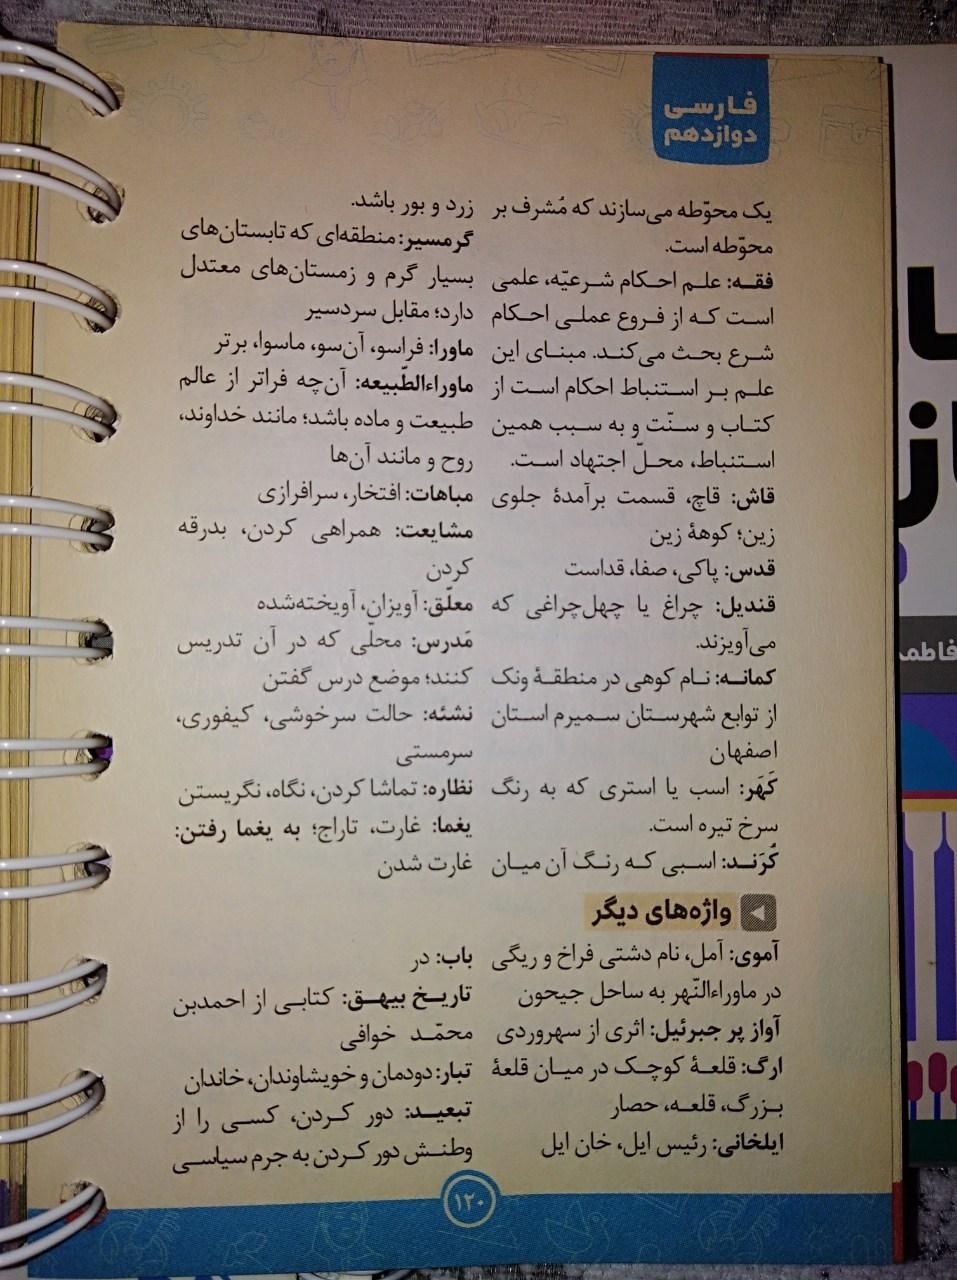 فارسی
دوازدهم
یک محوّطه می‌سازند که مُشرف بر
محوّطه است.
فقـه: علـم احـکام شـرعیّه، علمی
اسـت کـه از فـروع عملـی احـکام
شـرع بحـث می‌کنـد. مبنـای ایـن
علـم بـر اسـتنباط احکام اسـت از
کتـاب و سـنّت و به سـبب همین
اسـتنباط، محـلّ اجتهاد اسـت.
قاش: قاچ، قسمت برآمدهٔ جلوی
زین؛ کوههٔ زین
قدس: پاکی، صفا، قداست
قندیل: چراغ یا چهل‌چراغی که
می‌آویزند.
کمانـه: نـام کوهی در منطقـهٔ ونک
از توابع شهرسـتان سـمیرم اسـتان
اصفهان
کَهَر: اسب یا استری که به رنگ
سرخ تیره است.
کُرَنـد: اسـبی کـه رنـگ آن میـان
زرد و بور باشد.
گرمسیر: منطقه‌ای که تابستان‌های
بسیار گرم و زمستان‌های معتدل
دارد؛ مقابل سردسیر
ماورا: فراسو، آن‌سو، ماسوا، برتر
ماوراءالطّبیعه: آن‌چه فراتر از عالم
طبیعت و ماده باشد؛ مانند خداوند،
روح و مانند آن‌ها
مباهات: افتخار، سرافرازی
مشایعت: همراهی کردن، بدرقه
کردن
معلّق: آویزان، آویخته‌شده
مَدرس: محلّی که در آن تدریس
کنند؛ موضع درس گفتن
نشئه: حالت سرخوشی، کیفوری،
سرمستی
نظاره: تماشا کردن، نگاه، نگریستن
یغما: غارت، تاراج؛ به یغما رفتن:
غارت شدن
واژه‌های دیگر
آموی: آمل، نام دشتی فراخ و ریگی
در ماوراءالنّهر به ساحل جیحون
آواز پر جبرئیل: اثری از سهروردی
ارگ: قلعـهٔ کوچـک در میـان قلعـهٔ
بـزرگ، قلعـه، حصار
ایلخانی: رئیس ایل، خان ایل
باب: در
تاریـخ بیهـق: کتابـی از احمدبـن
محمّـد خوافی
تبار: دودمان و خویشاوندان، خاندان
تبعیـد: دور کـردن، کسـی را از
وطنـش دور کـردن به جرم سیاسـی
۱۲۰
فاطمه